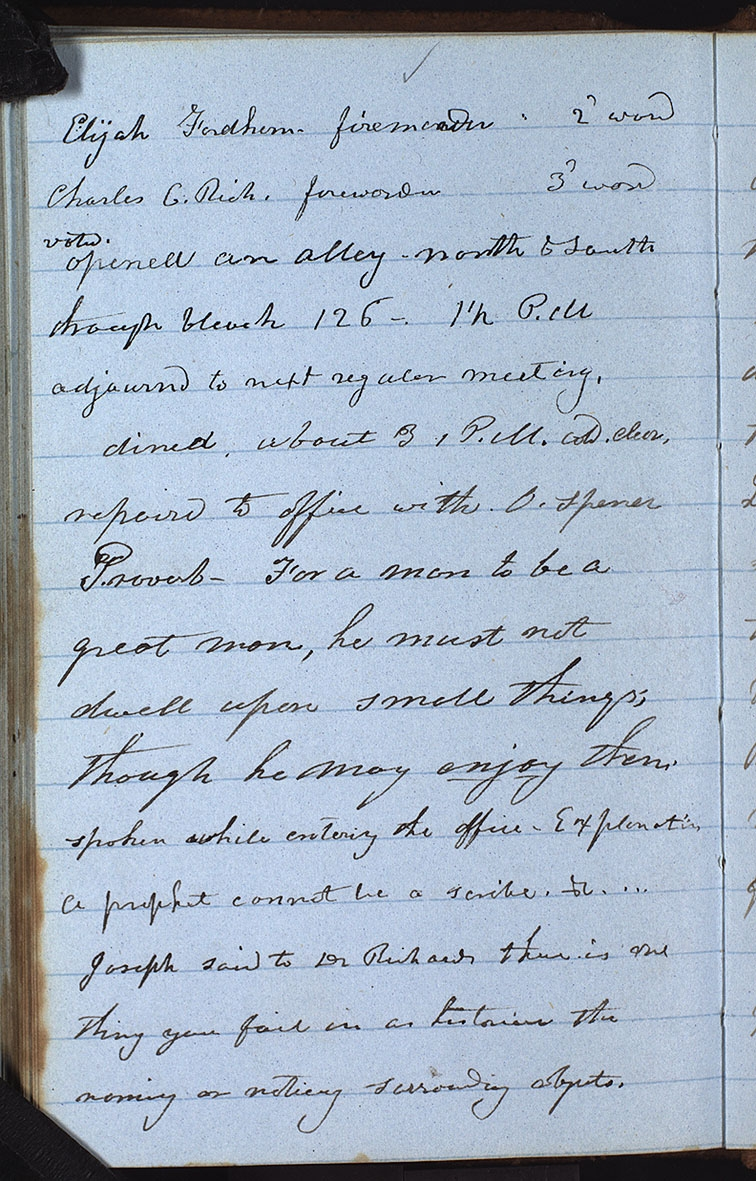 Elijah Fordham. firewarden. 2d ward
Charles C. Rich. firewarden 3d ward
voted.
opened an alley - north & South
through block 126 -. 1½ P.M
adjourned to next regular meeting.
dined, about 3, P.M. clear,
repaired to office with. O. Spencer
Proverb - For a man to be a
great man, he must not
dwell upon small things,
though he may enjoy them.
spoken while entering the office - Explanation
a prophet cannot be a scribe. &c. ...
Joseph said to Dr Richards there is one
thing you fail in as historian the
naming or noticing surrounding objects.